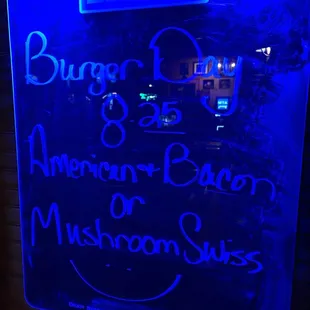 Burger Day
8 25
American + Bacon
or
Mushroom Swiss